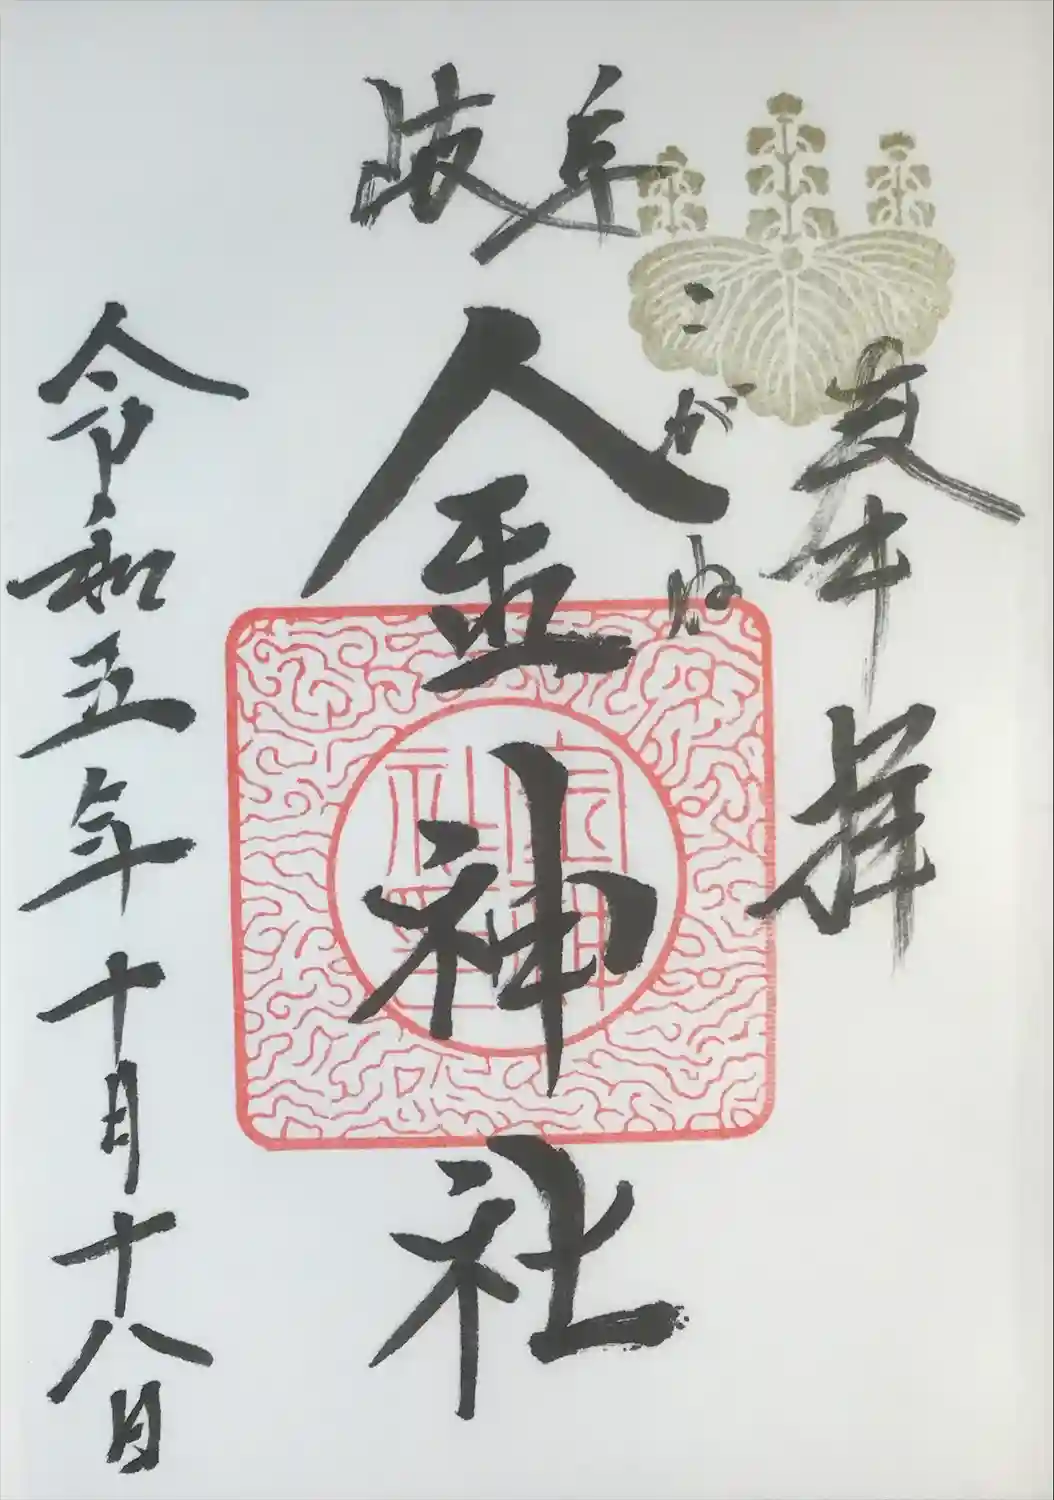 奉拝
岐阜
こがね
金神社
令和五年十月十八日